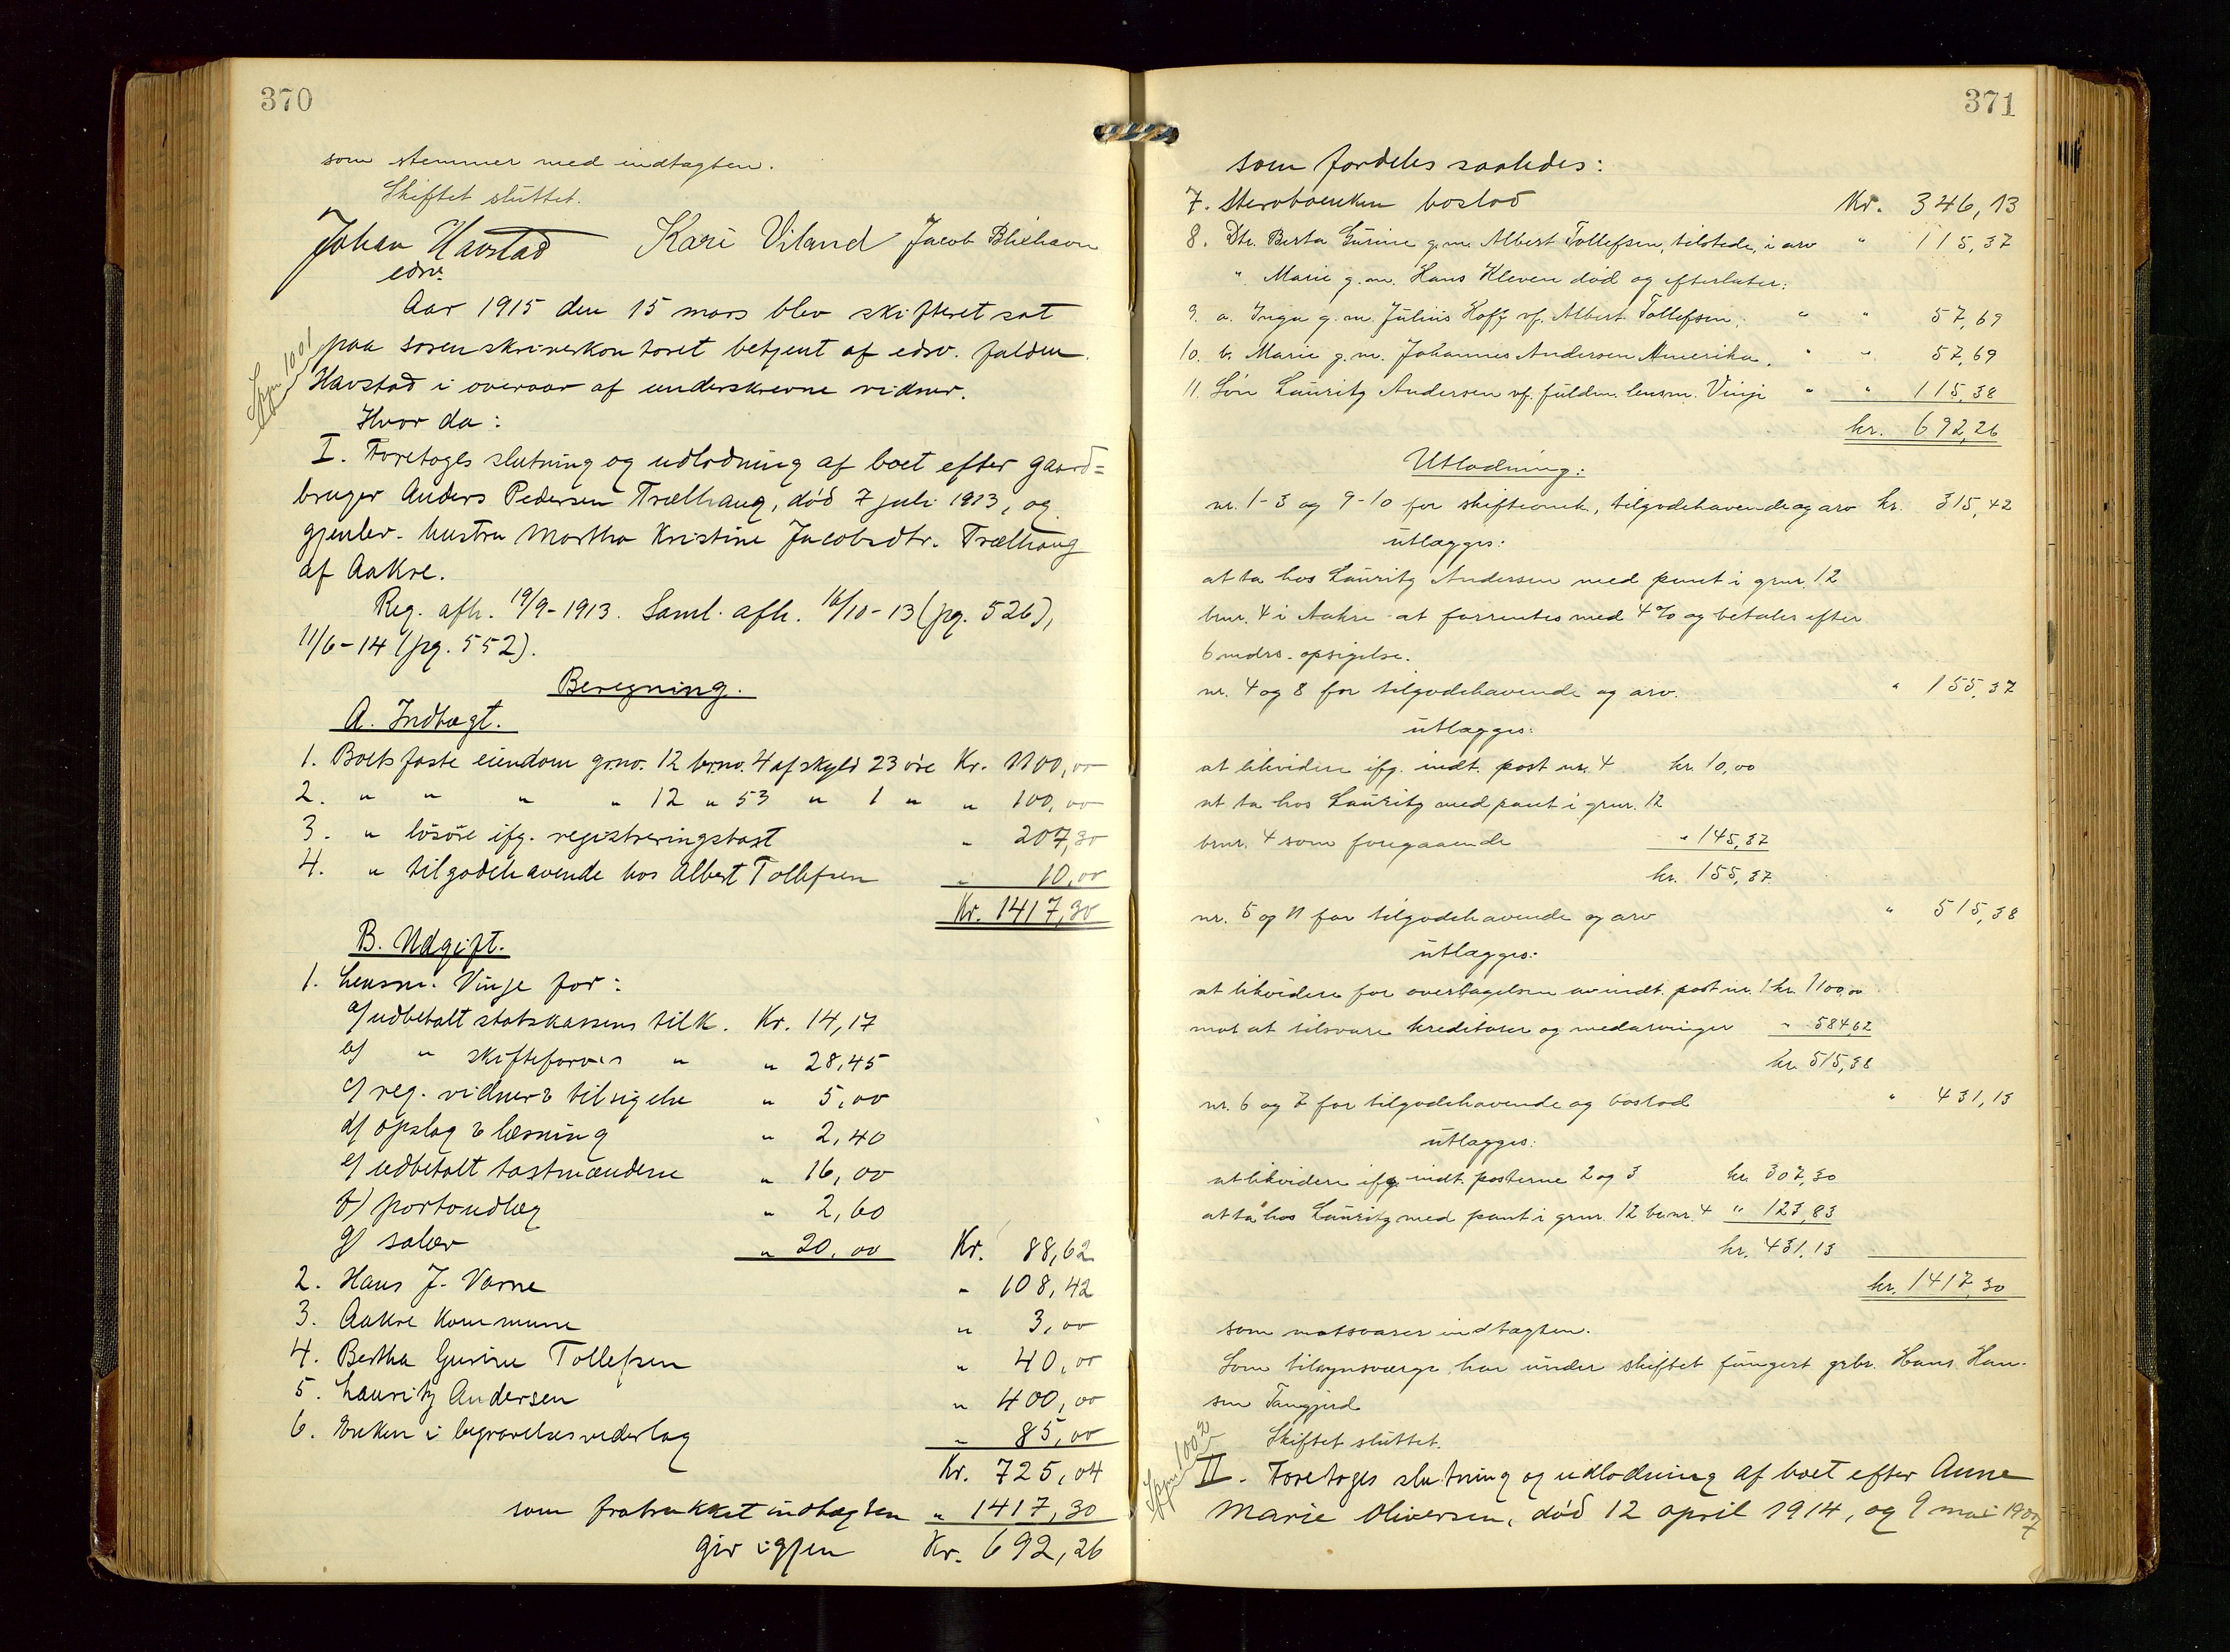 370
som stemmer med indtægten.
Skiftet sluttet.
Johan Havstad Kari Viland Jacob Bliehavn
edsv.
Aar 1915 den 15 mars blev skifteret sat
paa sorenskriverkontoret betjent af edsv. fuldm.
Havstad i overvær af underskrevne vidner.
Hvor da:
I. Foretoges slutning og udlodning af boet efter gaard=
bruger Anders Pedersen Trælhaug, död 7 juli 1913, og
gjenlev. hustru Martha Kristine Jacobsdtr. Trælhaug
af Aakre.
Reg. afh. 19/9-1913. Saml. afh. 16/10-13 (pg. 526),
11/6-14 (pg. 552).
Beregning.
A. Indtægt.
1. Boets faste eiendom grno. 12 brno. 4 af skyld 23 öre Kr. 1100,00
2. " " " " 12 " 53 " 1 " " 100,00
3. " lösöre ifg. registreringstaxt " 207,30
4. " tilgodehavende hos Albert Tollefsen " 10,00
Kr. 1417,30
B. Udgift.
1. Lensm. Vinje for:
a) udbetalt statskassens tilk. Kr. 14,17
b) " skifteforv.s " " 28,45
c) reg. vidner & tilsigelse " 5,00
d) opslag & læsning " 2,40
e) udbetalt taxtmændene " 16,00
f) portoudlæg " 2,60
g) salær " 20,00 Kr. 88,62
2. Hans J. Varne " 108,42
3. Aakre Kommune " 3,00
4. Bertha Gurine Tollefsen " 40,00
5. Lauritz Andersen " 400,00
6. Enken i begravelsesvederlag " 85,00
Kr. 725,04
som fratrukket indtægten " 1417,30
gir igjen Kr. 692,26
371
som fordeles saaledes:
7. Stervboenken boslod Kr. 346,13
8. Dtr. Berta Gurine g.m. Albert Tollefsen, tilstede, i arv " 115,37
" Marie g.m. Hans Kleven död og efterlater:
9. a. Inga g.m. Julius Hoff vf. Albert Tollefsen, " " 57,69
10. b. Marie g.m. Johannes Andersen Amerika, " " 57,69
11. Sön Lauritz Andersen vf. fuldm. lensm. Vinje " " 115,38
kr. 692,26
Utlodning:
nr. 1-3 og 9-10 for skifteomk., tilgodehavende og arv kr. 315,42
utlægges:
at ta hos Lauritz Andersen med pant i grnr. 12
bnr. 4 i Aakre at forrentes med 4% og betales efter
6 mdrs. opsigelse.
nr. 4 og 8 for tilgodehavende og arv. " 155,37
utlægges:
at likvidere ifg. indt. post nr. 4 kr. 10,00
at ta hos Lauritz med pant i grnr. 12
brnr. 4 som foregaaende " 145,37
kr. 155,37
nr. 5 og 11 for tilgodehavende og arv " 515,38
utlægges:
at likvidere for overtagelsen av indt. post nr. 1 kr. 1100,00
mot at tilsvare kreditorer og medarvinger " 584,62
kr. 515,38
nr. 6 og 7 for tilgodehavende og boslod " 431,13
utlægges:
at likvidere ifg. indt. posterne 2 og 3 kr. 307,30
at ta hos Lauritz med pant i grnr. 12 brnr. 4 " 123,83
kr. 431,13
kr. 1417,30
som motsvarer indtægten.
Som tilsynsværge har under skiftet fungert grbr. Hans Han-
sen
Skiftet sluttet.
II. Foretoges slutning og udlodning af boet efter Anne
Marie Oliversen, död 12 april 1914, og 9 mai 1907